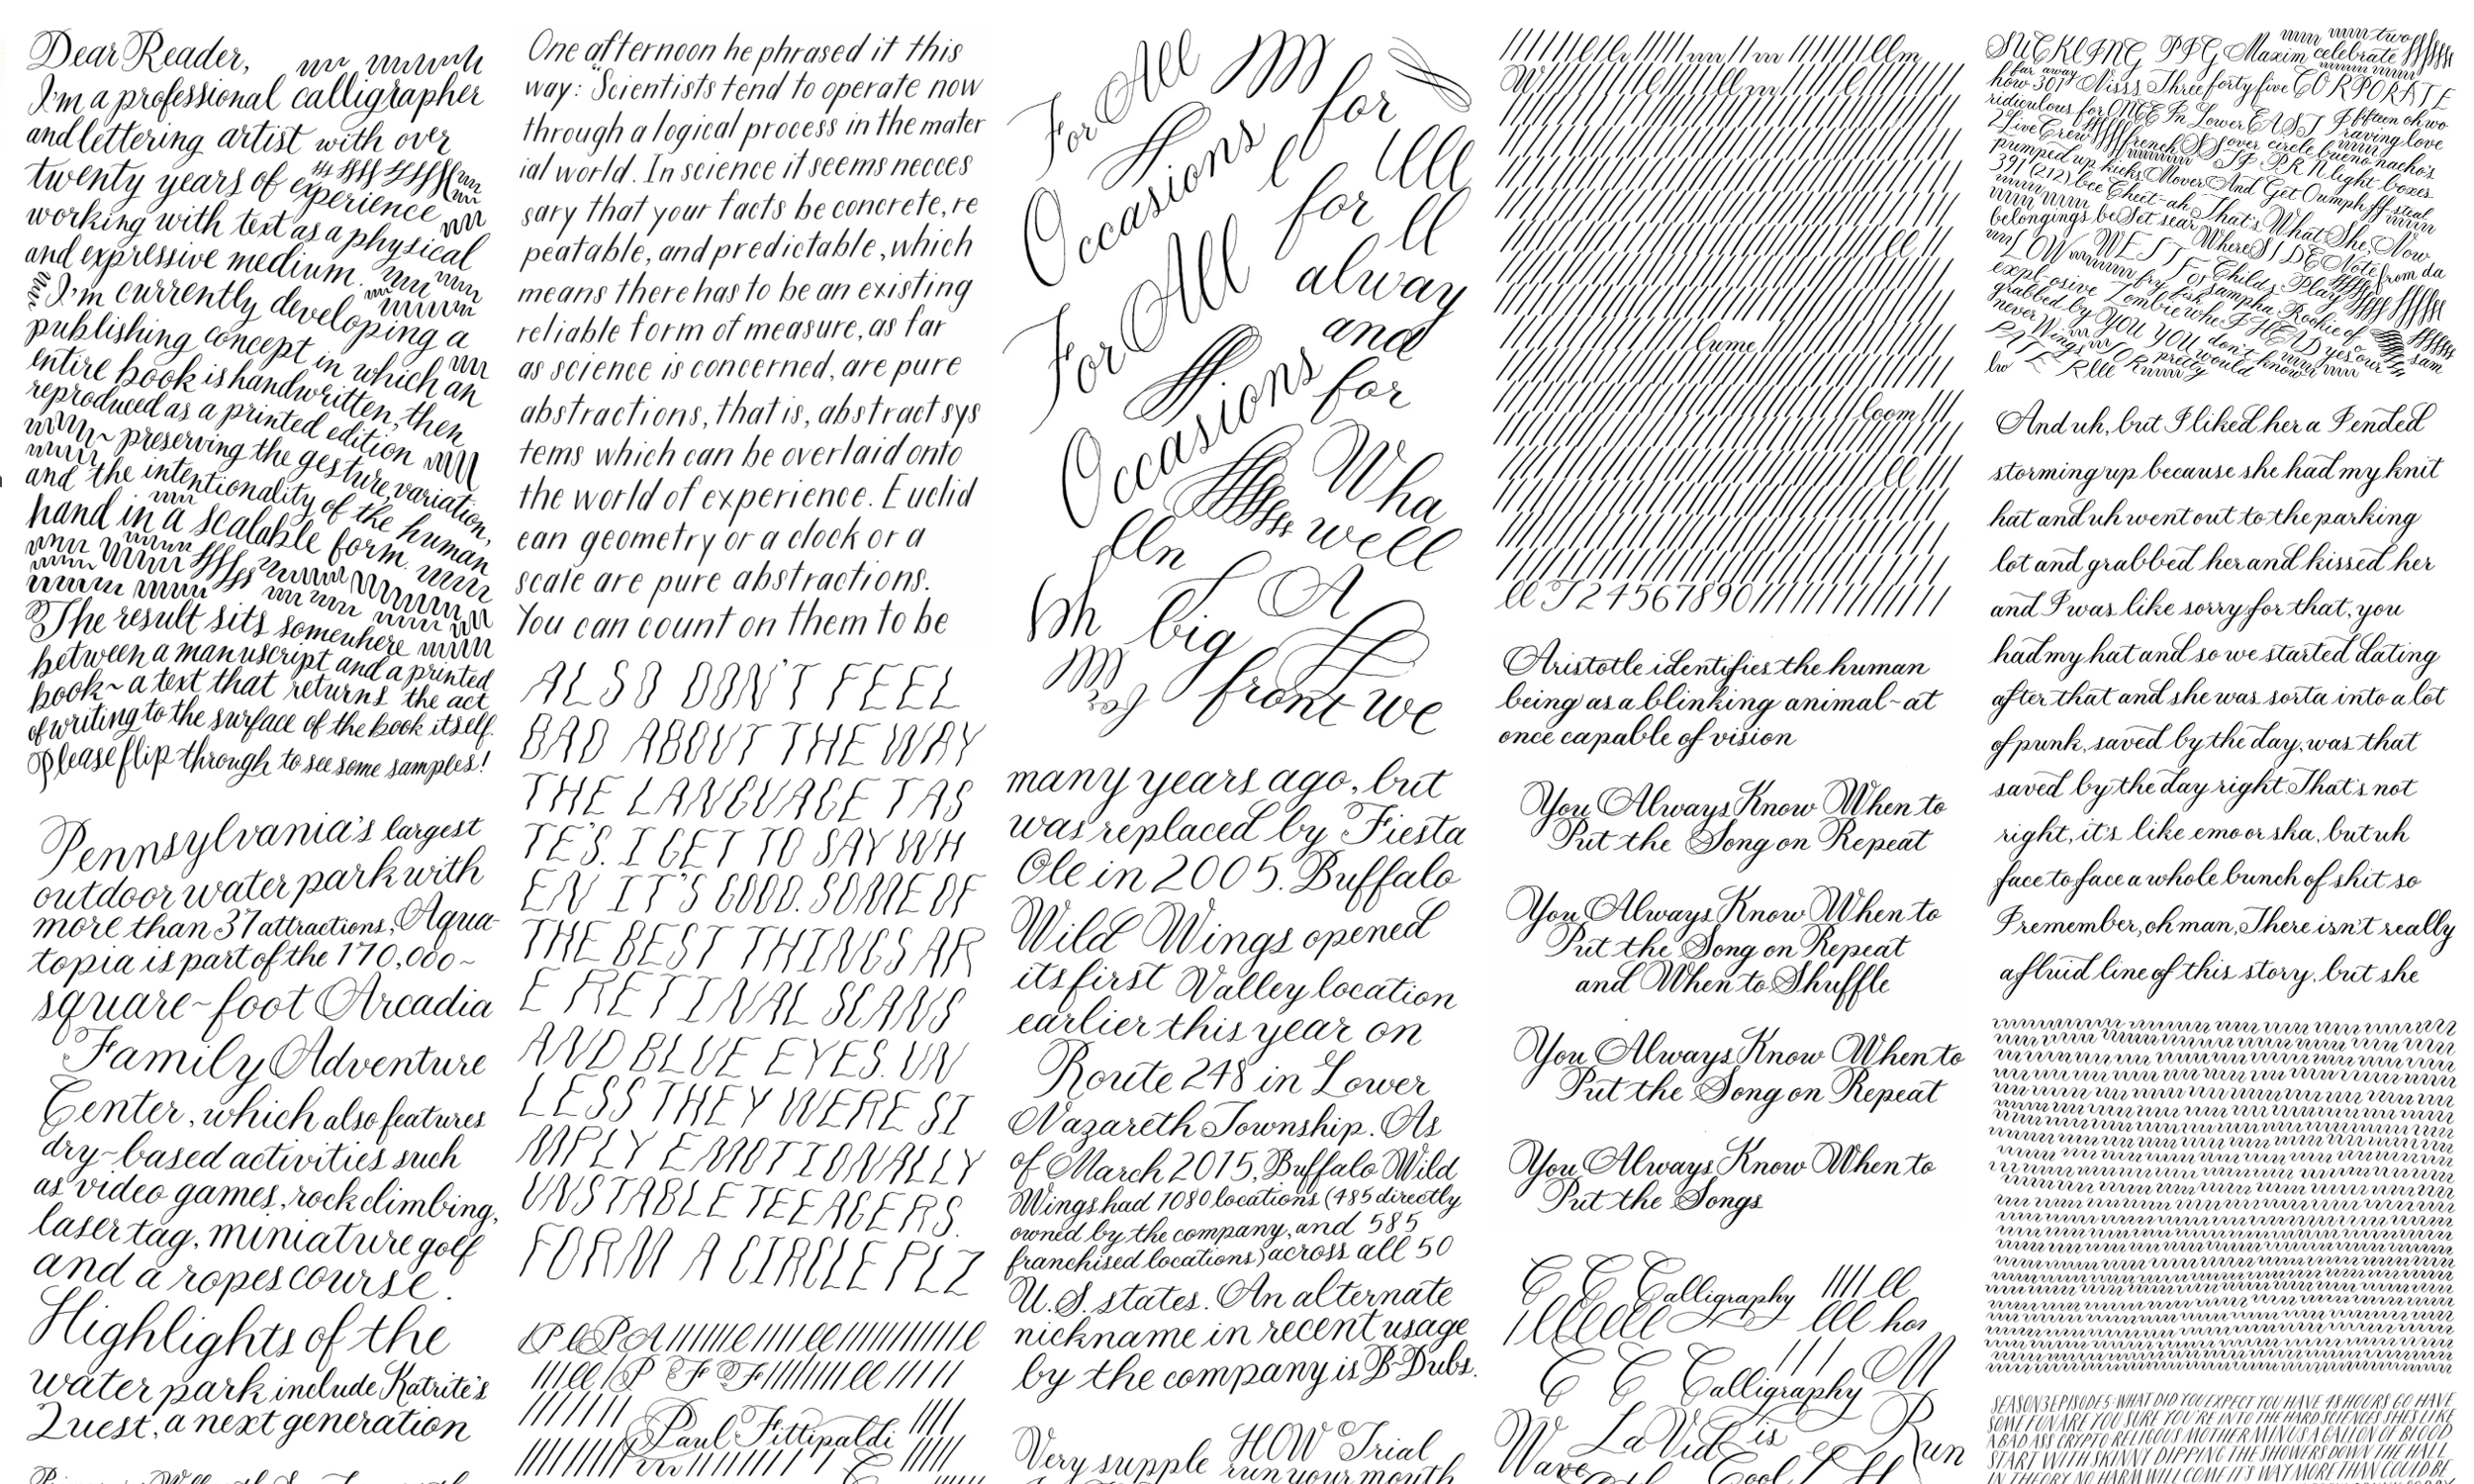 Dear Reader,
I'm a professional calligrapher
and lettering artist with over
twenty years of experience
working with text as a physical
and expressive medium.
I'm currently developing a
publishing concept in which an
entire book is handwritten, then
reproduced as a printed edition
~ preserving the gesture, variation,
and the intentionality of the human
hand in a scalable form.
The result sits somewhere
between a manuscript and a printed
book ~ a text that returns the act
of writing to the surface of the book itself.
Please flip through to see some samples!
Pennsylvania's largest
outdoor water park with
more than 37 attractions, Aqua-
topia is part of the 170,000~
square~foot Arcadia
Family Adventure
Center, which also features
dry~based activities such
as video games, rock climbing,
laser tag, miniature golf
and a ropes course.
Highlights of the
water park include Katrite's
Quest, a next generation
One afternoon he phrased it this
way: "Scientists tend to operate now
through a logical process in the mater
ial world. In science it seems necces
sary that your facts be concrete, re
peatable, and predictable, which
means there has to be an existing
reliable form of measure, as far
as science is concerned, are pure
abstractions, that is, abstract sys
tems which can be overlaid onto
the world of experience. Euclid
ean geometry or a clock or a
scale are pure abstractions.
You can count on them to be
ALSO DON'T FEEL
BAD ABOUT THE WAY
THE LANGUAGE TAS
TE'S. I GET TO SAY WH
EN IT'S GOOD. SOME OF
THE BEST THINGS AR
E RETINAL SCANS
AND BLUE EYES. UN
LESS THEY WERE SI
MPLY EMOTIONALLY
UNSTABLE TEEAGERS.
FORM A CIRCLE PLZ
Paul Fittipaldi
For All
for
Occasions
for
For All
alway
and
Occasions
for
Wha
well
A
big
front we
many years ago, but
was replaced by Fiesta
Ole in 2005. Buffalo
Wild Wings opened
its first Valley location
earlier this year on
Route 248 in Lower
Nazareth Township. As
of March 2015, Buffalo Wild
Wings had 1080 locations (485 directly
owned by the company, and 585
franchised locations) across all 50
U.S. states. An alternate
nickname in recent usage
by the company is B-Dubs.
Very supple HOW Trial
run your mouth
lume
loom
ll
ll T 2 4 5 6 7 8 9 0
Aristotle identifies the human
being as a blinking animal~at
once capable of vision
You Always Know When to
Put the Song on Repeat
You Always Know When to
Put the Song on Repeat
and When to Shuffle
You Always Know When to
Put the Song on Repeat
You Always Know When to
Put the Songs
C C Calligraphy
C C Calligraphy M
La Vid is Run
Wave Cool
SUCKLING PIG Maxim celebrate
far away
how 301 Nisss Three forty five CORPORATE
ridiculous for ONCE In Lower EAST Fifteen oh wo
2 Live Crew french SS over circle bueno nachos
pumped up kicks Mover And Get Oumph
391 (212) bee Cheet-ah That's What She, Now
belongings be Set sear Where SIDE Note from da
LOW WEST For Childs Play
expl-osive Zombie fry fisk sampha Rookie of
grabbed by YOU YOU don't know yes our sam
never Wings pretty would
And uh, but I liked her a I ended
storming up because she had my knit
hat and uh went out to the parking
lot and grabbed her and kissed her
and I was like sorry for that, you
had my hat and so we started dating
after that and she was sorta into a lot
of punk, saved by the day, was that
saved by the day right. That's not
right, it's like emo or ska, but uh
face to face a whole bunch of shit so
I remember, oh man, There isn't really
a fluid line of this story, but she
SEASON 3 EPISODE 5-WHAT DID YOU EXPECT YOU HAVE 48 HOURS GO HAVE
SOME FUN ARE YOU SURE YOU'RE INTO THE HARD SCIENCES SHE'S LIKE
A BAD ASS CRYPTO RELIGOUS MOTHER MINUS A GALLON OF BLOOD
START WITH SKINNY DIPPING THE SHOWERS DOWN THE HALL
IN THEORY NO HARM WILL COME IT WAY MORE THAN COULD BE